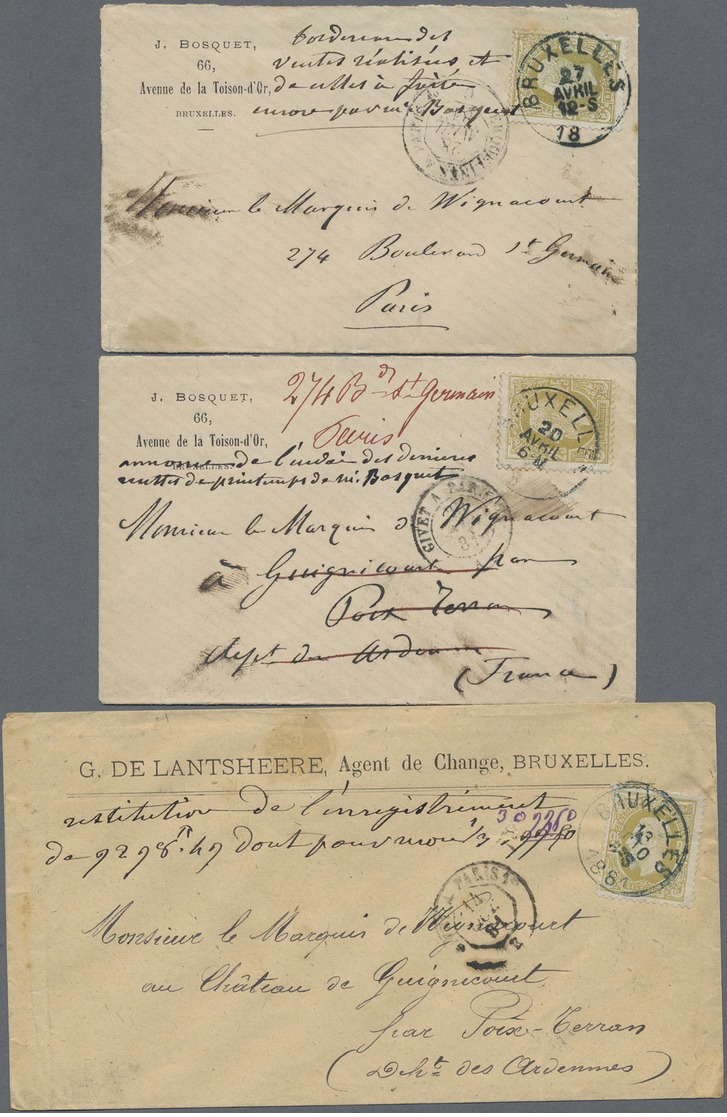 J. BOSQUET,
66,
Avenue de la Toison-d'Or,
BRUXELLES.
bordereau des
ventes réalisées et
de celles à faire
encore par mr Bosquet
BRUXELLES
27
AVRIL
12-S
18
ERQUELINES A PARIS
Monsieur le Marquis de Wignacourt
274 Boulevard St Germain
Paris
J. BOSQUET,
66,
Avenue de la Toison-d'Or,
BRUXELLES.
274 Bd St Germain
Paris
annonce de l'envoi des dernières
de printemps de m. Bosquet
BRUXELLES
20
AVRIL
6-M
GIVET A PARIS
Monsieur le Marquis de Wignacourt
à Guignicourt par
Poix Terron
dept des Ardennes
(France)
G. DE LANTSHEERE, Agent de Change, BRUXELLES.
restitution de l'enregistrement
de 9298 fr. 49 dont pour moi
BRUXELLES
1881
PARIS
Monsieur le Marquis de Wignacourt
au Château de Guignicourt
par Poix-Terron
(Dept. des Ardennes)